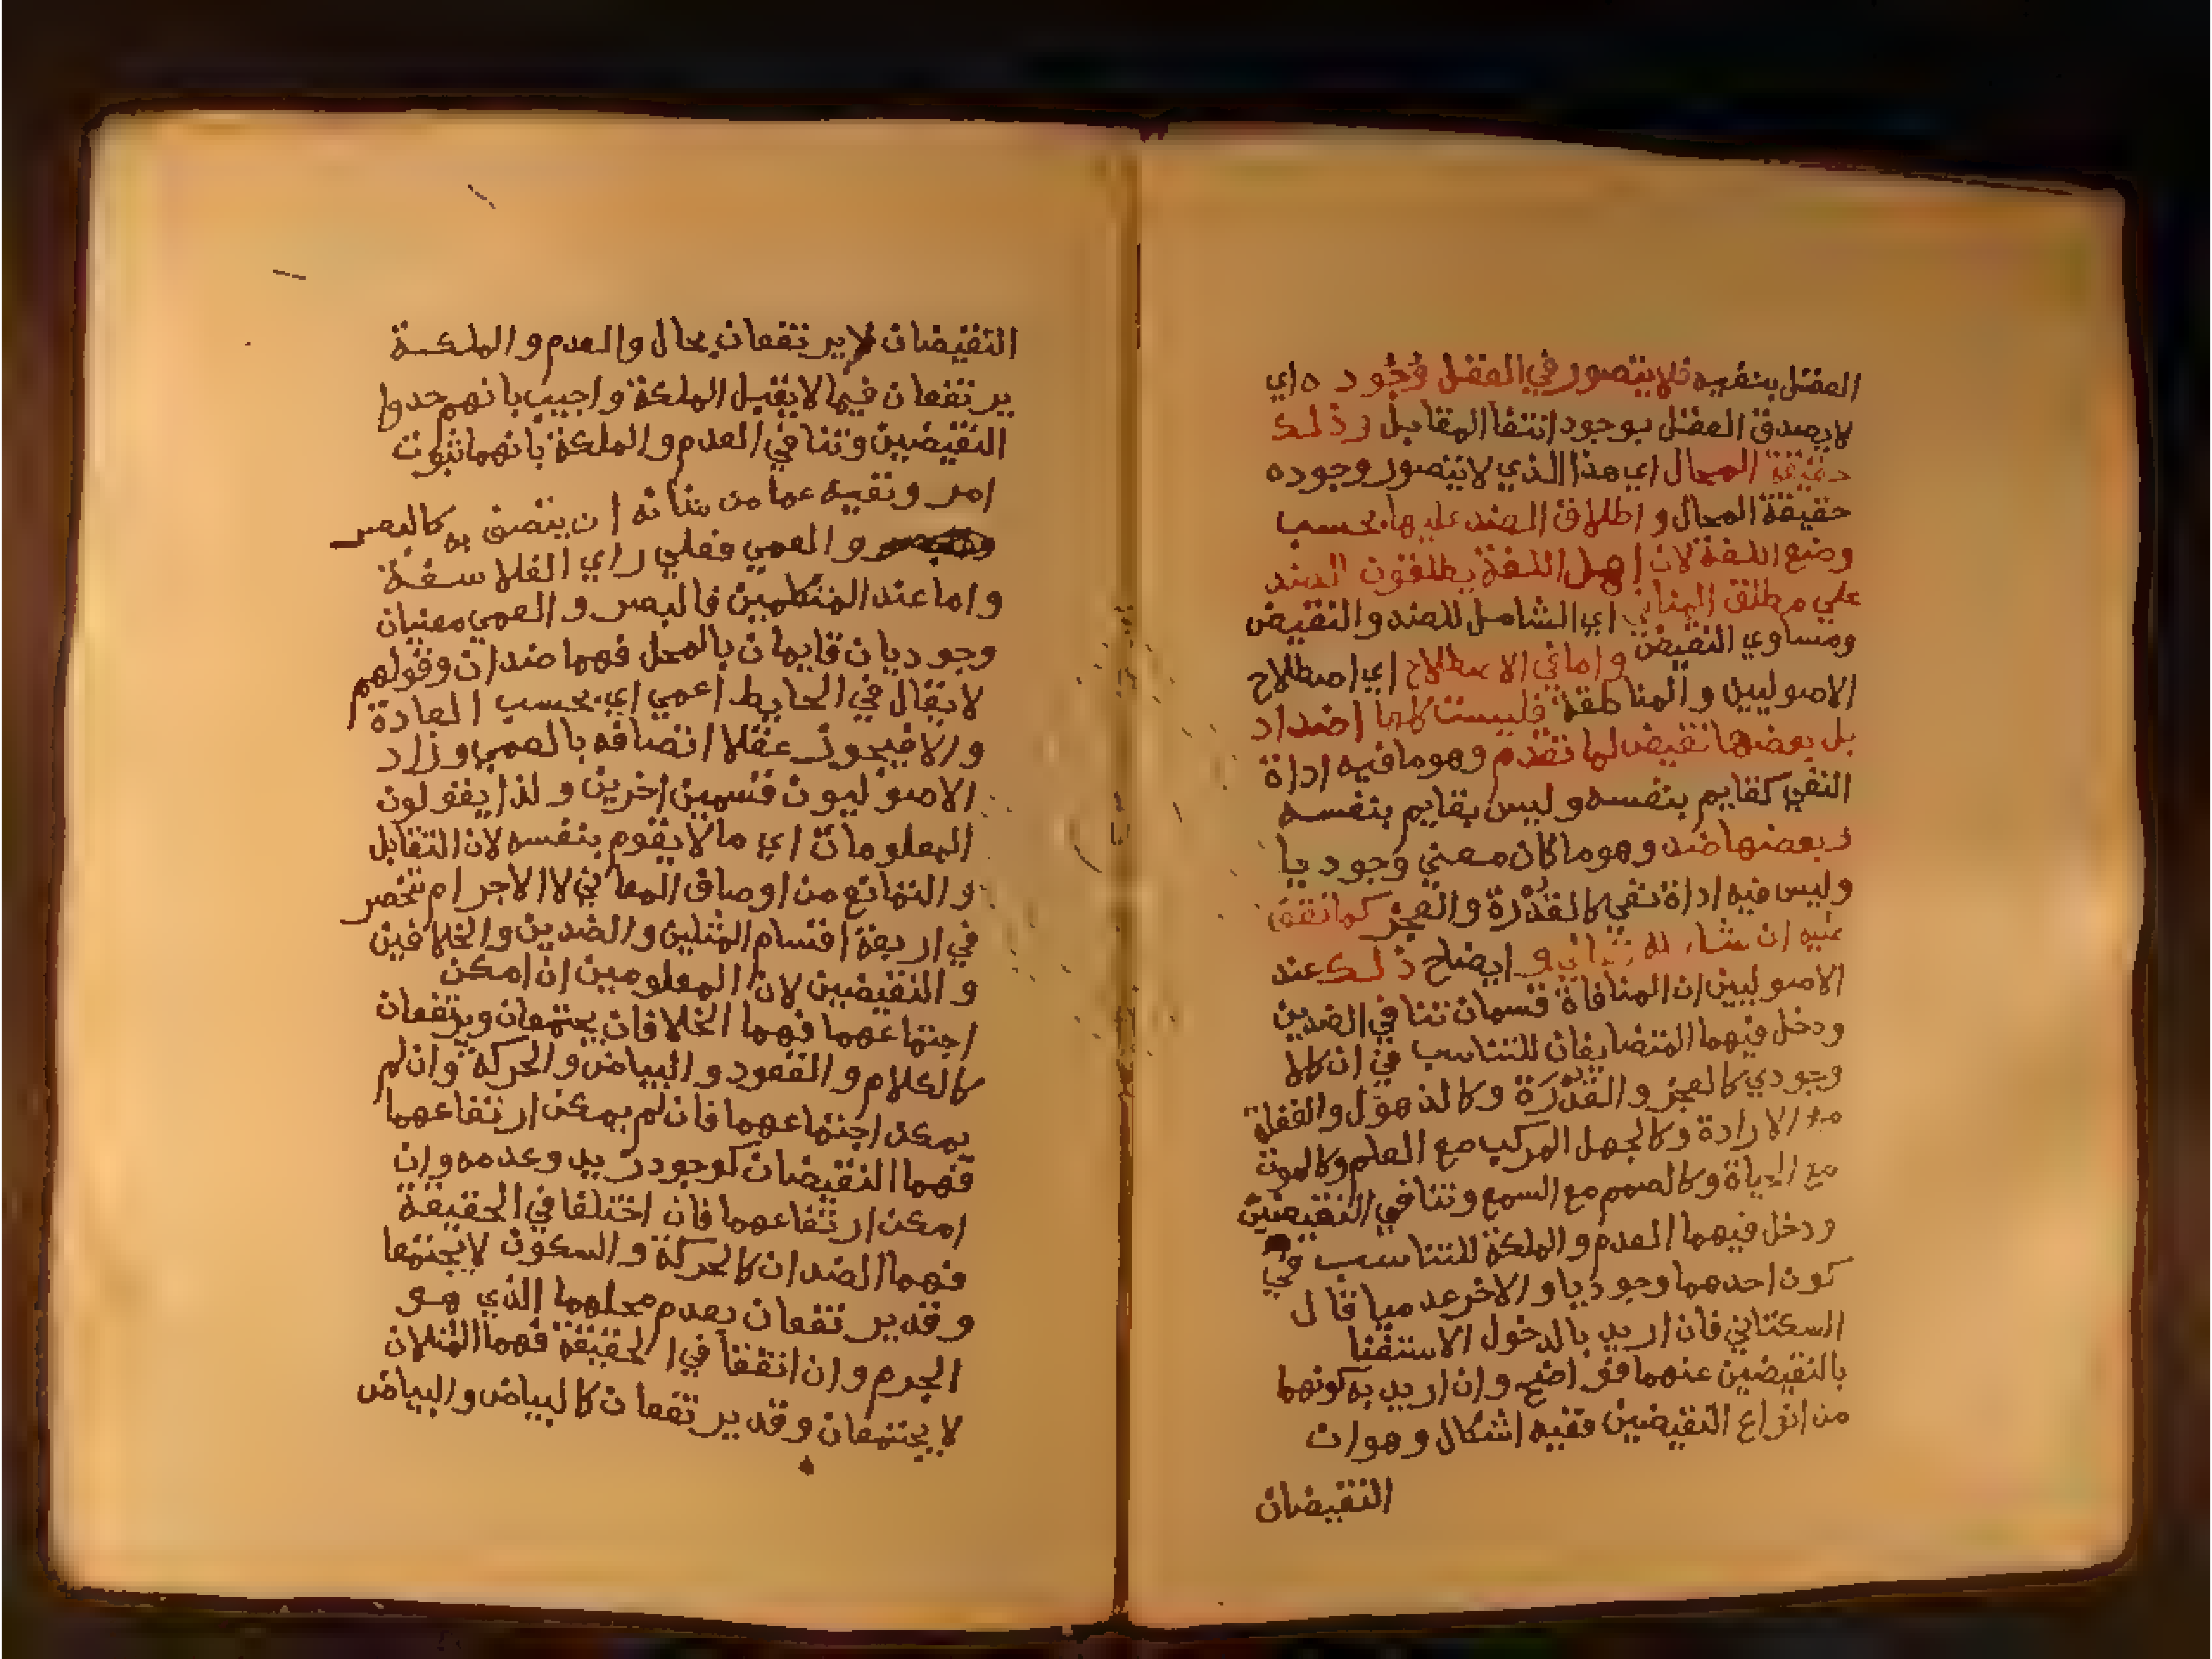 العقل بنفيه فلا يتصور في العقل وجوده اي
لا يصدق العقل بوجود انتفا المقابل وذلك
حقيقة المحال اي هذا الذي لا يتصور وجوده
حقيقة المحال واطلاق الضد عليها بحسب
وضع اللغة لان اهل اللغة يطلقون الضد
علي مطلق المنافي اي الشامل للضد والنقيض
ومساوي النقيض واما في الاصطلاح اي اصطلاح
الاصوليين والمناطقة فليست كلها اضداد
بل بعضها نقيض لما تقدم وهو ما فيه اداة
النفي كقايم بنفسه وليس بقايم بنفسه
وبعضها ضد وهو ما كان معني وجوديا
وليس فيه اداة نفي كالقدرة والعجز كما تقف
عليه ان شاء الله تعالي وايضاح ذلك عند
الاصوليين ان المنافاة قسمان تنافي الضدين
ودخل فيهما المتضايفان للتناسب في ان كلا
وجودي كالعجز والقدرة وكالذهول والغفلة
مع الارادة وكالجهل المركب مع العلم وكالموت
مع الحياة وكالصمم مع السمع وتنافي النقيضين
ودخل فيهما العدم والملكة للتناسب في
كون احدهما وجوديا والاخر عدميا قال
السكتاني فان اريد بالدخول الاستغنا
بالنقيضين عنهما فواضح وان اريد به كونهما
من انواع النقيضين ففيه اشكال وهو ان
النقيضان
النقيضان لا يرتفعان بحال والعدم والملكة
يرتفعان فيما لا يقبل الملكة واجيب بانهم حدوا
النقيضين وتنافي العدم والملكة بانهما ثبوت
امر ونفيه عما من شانه ان يتصف به كالبصر
والعمي فعلي راي الفلاسفة
واما عند المتكلمين فالبصر والعمي معنيان
وجوديان قايمان بالمحل فهما ضدان وقولهم
لا يقال في الحايط اعمي اي بحسب العادة
والا فيجوز عقلا اتصافه بالعمي وزاد
الاصوليون قسمين اخرين ولذا يقولون
المعلومات اي ما لا يقوم بنفسه لان التقابل
والتمانع من اوصاف المعاني لا الاجرام تنحصر
في اربعة اقسام المثلين والضدين والخلافين
والنقيضين لان المعلومين ان امكن
اجتماعهما فهما الخلافان يجتمعان ويرتفعان
كالكلام والقعود والبياض والحركة وان لم
يمكن اجتماعهما فان لم يمكن ارتفاعهما
فهما النقيضان كوجود زيد وعدمه وان
امكن ارتفاعهما فان اختلفا في الحقيقة
فهما الضدان كالحركة والسكون لا يجتمعا
وقد يرتفعان بعدم محلهما الذي هو
الجرم وان اتفقا في الحقيقة فهما المثلان
لا يجتمعان وقد يرتفعان كالبياض والبياض